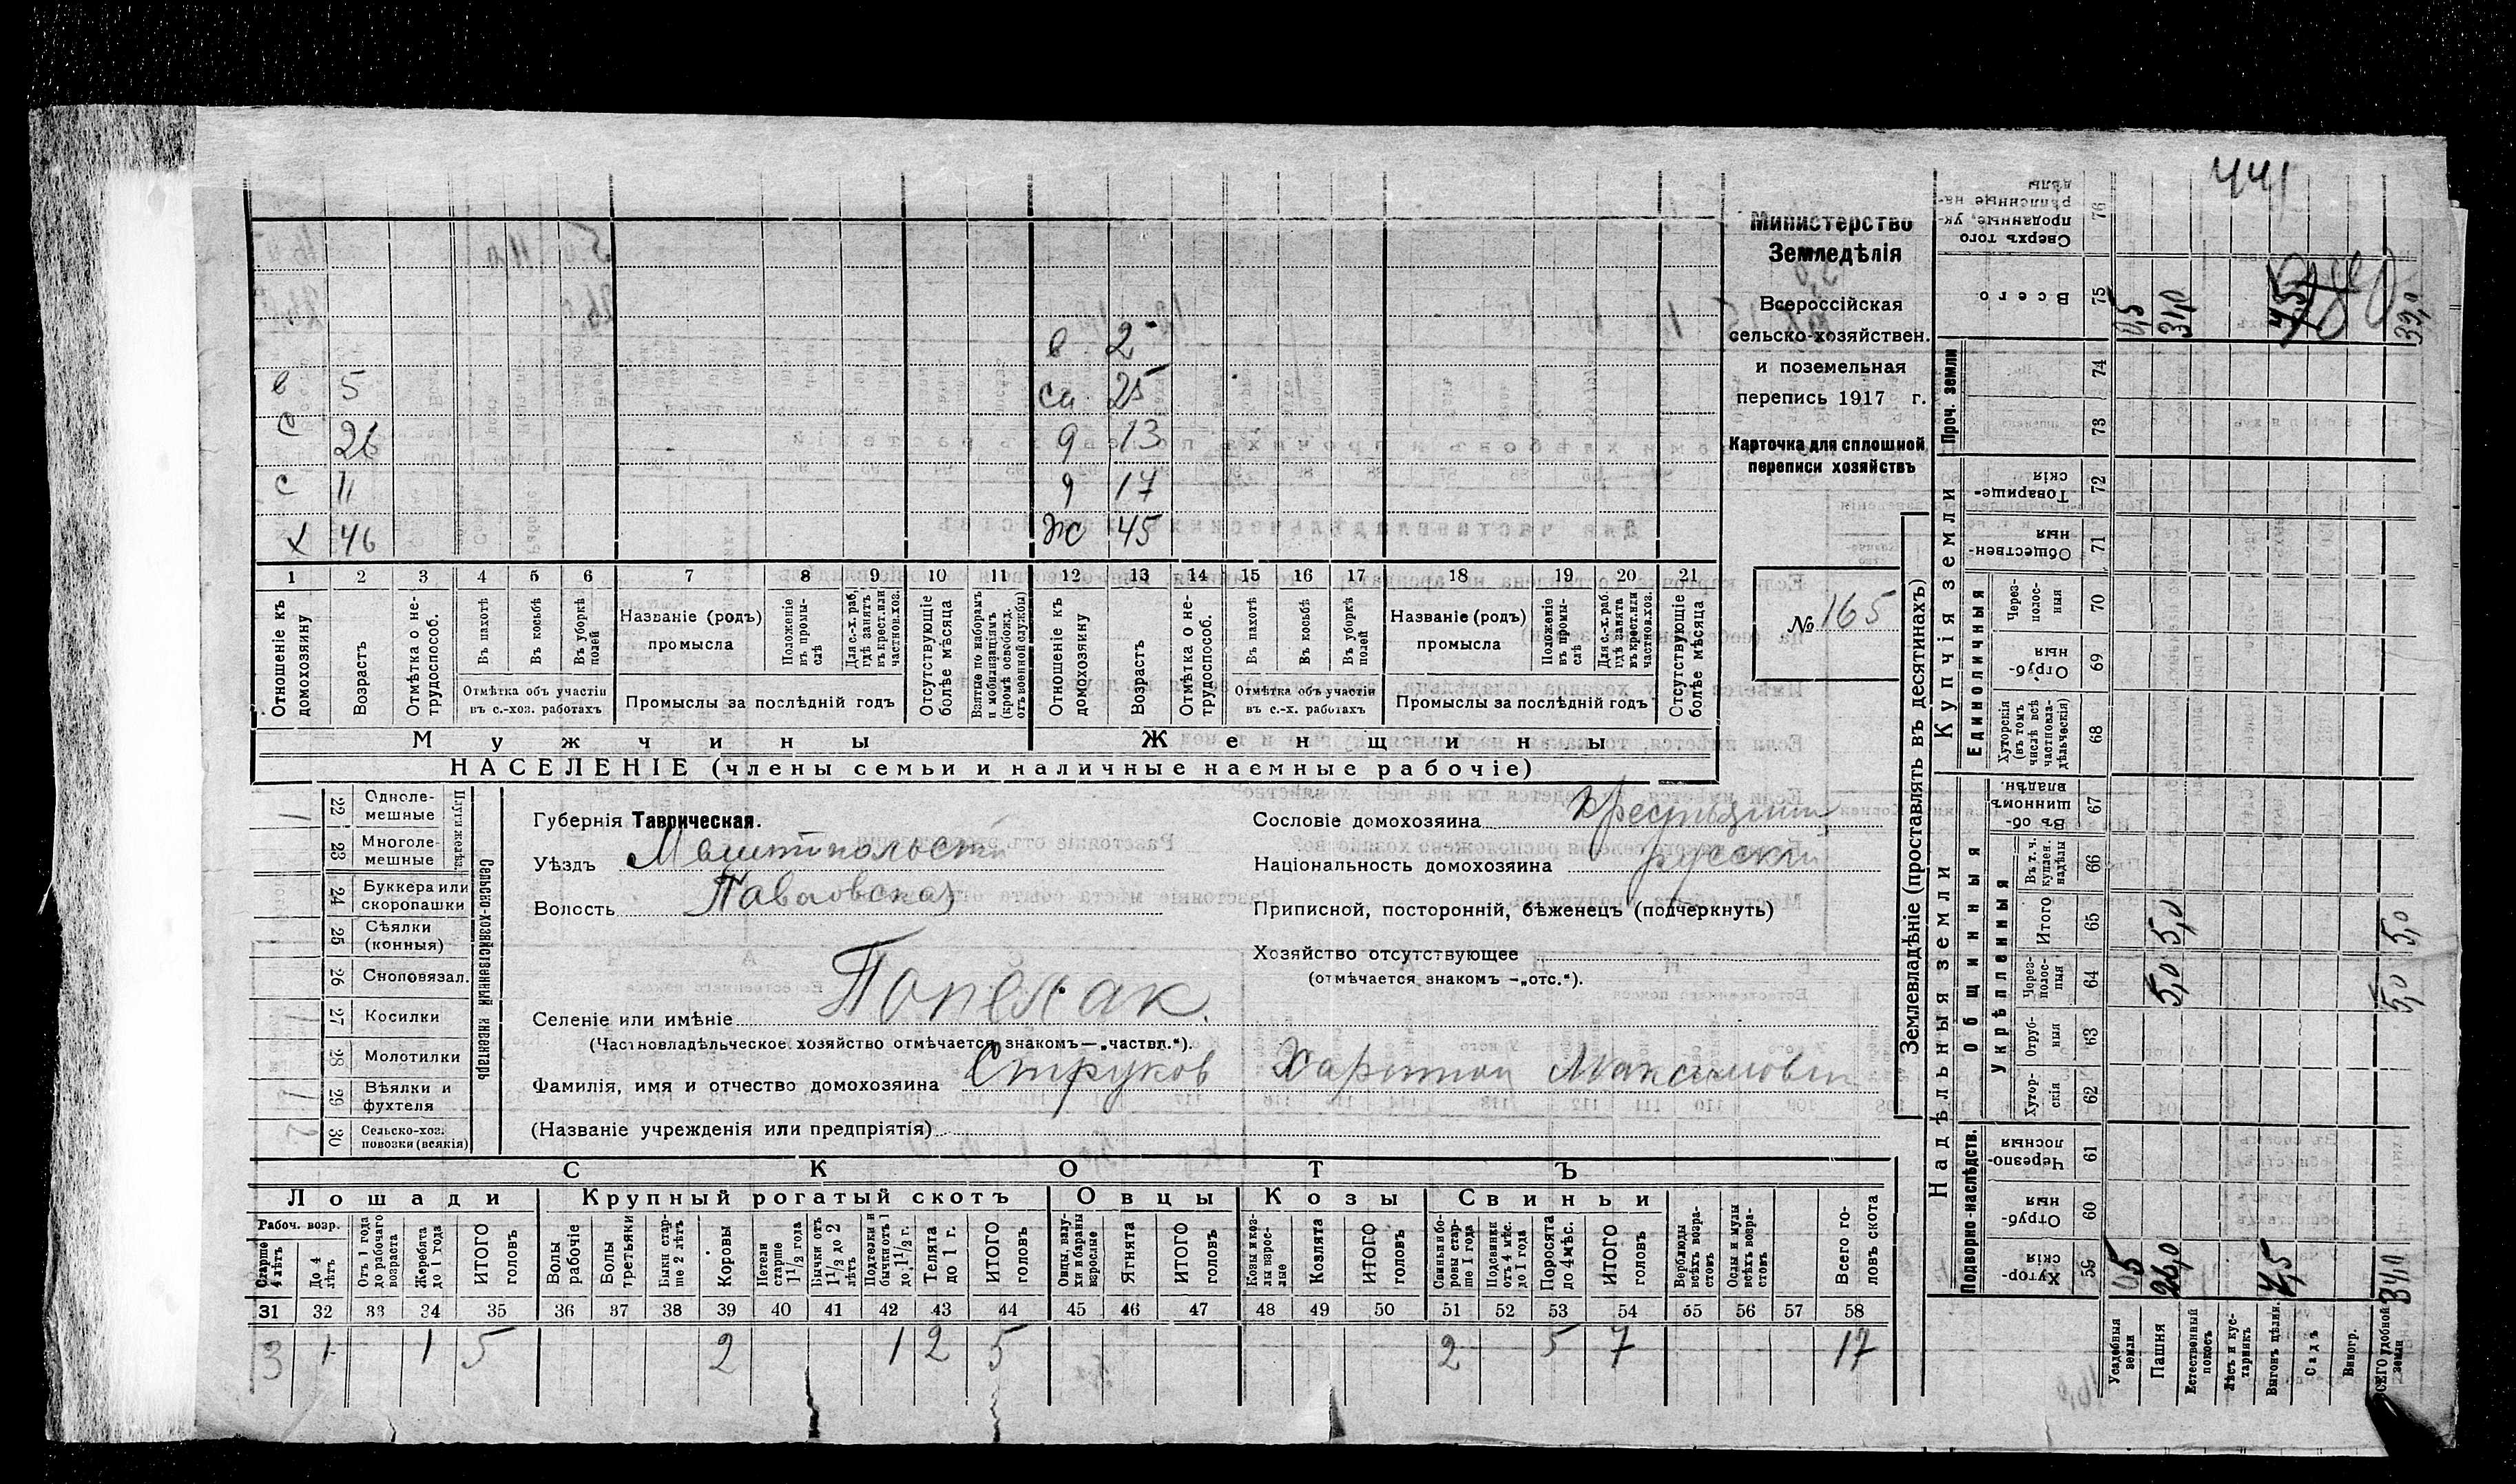 441
в 2
в 5 са 25
с 26 9 13
с 11 9 17
х 46 Ж 45
1 2 3 4 5 6 7 8 9 10 11 12 13 14 15 16 17 18 19 20 21
Отношеніе къ домохозяину
Возрастъ
Отмѣтка о не-трудоспособ.
Въ пахотѣ
Въ косьбѣ
Въ уборкѣ полей
Отмѣтка объ участіи
въ с.-хоз. работахъ
Названіе (родъ)
промысла
Положеніе въ промы-слѣ
Для с.-х. раб, гдѣ занятъ въ крест. или частнов. хоз.
Промыслы за послѣдній годъ
Отсутствующіе болѣе мѣсяца
Взятые по наборамъ и мобилизаціямъ (кромѣ освобожд. отъ военной службы)
Отношеніе къ домохозяину
Возрастъ
Отмѣтка о не-трудоспособ.
Въ пахотѣ
Въ косьбѣ
Въ уборкѣ полей
Отмѣтка объ участіи
въ с.-х. работахъ
Названіе (родъ)
промысла
Положеніе въ промы-слѣ
Для с.-х. раб. гдѣ занята въ крест. или частнов. хоз.
Промыслы за послѣдній годъ
Отсутствующіе болѣе мѣсяца
Мужчины Женщины
НАСЕЛЕНІЕ (члены семьи и наличные наемные рабочіе)
Министерство
Земледѣлія
Всероссійская
сельско-хозяйствен.
и поземельная
перепись 1917 г.
Карточка для сплошной
переписи хозяйствъ
№ 165
Сельско-хозяйственный инвентарь
Плуги желѣз.
22 Одноле-мешные 1
23 Многоле-мешные
24 Буккера или скоропашки
25 Сѣялки (конныя)
26 Сноповязал.
27 Косилки 1
28 Молотилки
29 Вѣялки и фухтеля 1
30 Сельско-хоз. повозки (всякія) 2
Губернія Таврическая.
Уѣздъ Мелитопольскій
Волость Павловская
Селеніе или имѣніе
(Частновладѣльческое хозяйство отмѣчается знакомъ—„частвл.“).
Фамилія, имя и отчество домохозяина Струков Харитон Максимович
(Названіе учрежденія или предпріятія)
Сословіе домохозяина Крестьянин
Національность домохозяина русский
Приписной, посторонній, бѣженецъ (подчеркнуть)
Хозяйство отсутствующее
(отмѣчается знакомъ —„отс.“).
СКОТЪ
Лошади Крупный рогатый скотъ Овцы Козы Свиньи
Рабоч. возр.
Старше 4 лѣтъ
До 4 лѣтъ
Отъ 1 года до рабочаго возраста
Жеребята до 1 года
ИТОГО головъ
Волы рабочіе
Волы третьяки
Быки стар-ше 2 лѣтъ
Коровы
Нетели старше 1 1/2 года
Бычки отъ 1 1/2 до 2 лѣтъ
Подтелки и бычки отъ 1 до 1 1/2 г.
Телята до 1 г.
ИТОГО головъ
Овцы, валу-хи и бараны взрослые
Ягнята
ИТОГО головъ
Козы и коз-лы взрос-лые
Козлята
ИТОГО головъ
Свиньи и бо-ровы стар-ше 1 года
Подсвинки отъ 4 мѣс. до 1 года
Поросята до 4 мѣс.
ИТОГО головъ
Верблюды всѣхъ возра-стовъ
Ослы и мулы всѣхъ возра-стовъ
Всего го-ловъ скота
31 32 33 34 35 36 37 38 39 40 41 42 43 44 45 46 47 48 49 50 51 52 53 54 55 56 57 58
3 1 1 5 2 1 2 5 2 5 7 17
Землевладѣніе (проставлять въ десятинахъ)
Надѣльныя земли Купчія земли Проч. земли
Подворно-наслѣдств.
Общинныя
Укрѣпленныя
Единоличныя
Хутор-скія 59 0,5 26,0 7,5 34,0
Отруб-ныя 60
Черезпо-лосныя 61
Хутор-скія 62
Отруб-ныя 63
Через-полос-ныя 64 5,0 5,0
Итого 65 5,0 5,0
Въ т. ч. куплен. надѣлы 66
Въ об-щинномъ владѣн. 67
Хуторскія (въ томъ числѣ всѣ частновла-дѣльческія) 68
Отруб-ныя 69
Через-полос-ныя 70
Обществен-ныя 71
Товарище-скія 72
73
74
Всего 75 0,5 31,0 39,0
Сверхъ того проданные, ук-рѣпленные на-дѣлы 76
Усадебныя земли
Пашня
Естественный покосъ
Лѣсъ и кус-тарникъ
Выгонъ цѣлин.
Садъ
Виногр.
ВСЕГО удобной земли